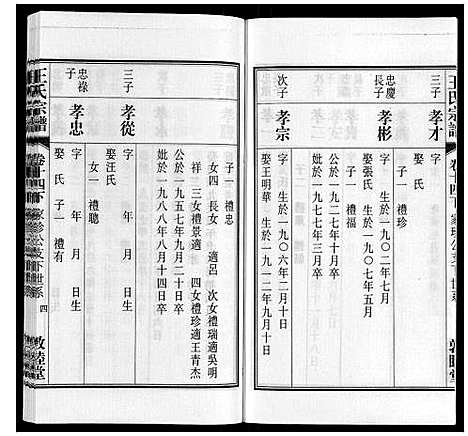 王氏宗譜
卷十四下
孝才
子一禮珍
忠慶
長子
孝彬
字 生於一九〇二年七月
娶張氏 生於一九〇七年五月
子一禮福
公於一九七七年三月卒
次子
孝宗
字 生於一九〇六年二月十日
娶王明華 生於一九一二年九月十日
子一禮忠
女四 長女 適呂 次女禮瑞適吳明
祥 三女禮景適 四女禮珍適王青杰
公於一九五七年九月二十日卒
妣於一九八八年八月十四日卒
三子
孝從
字 年 月 日生
娶汪氏
女一禮聰
忠祿
子
孝忠
字 年 月 日生
娶 氏 子一禮有
王氏宗譜
卷十四下
家珍公支下世系
四
敦睦堂